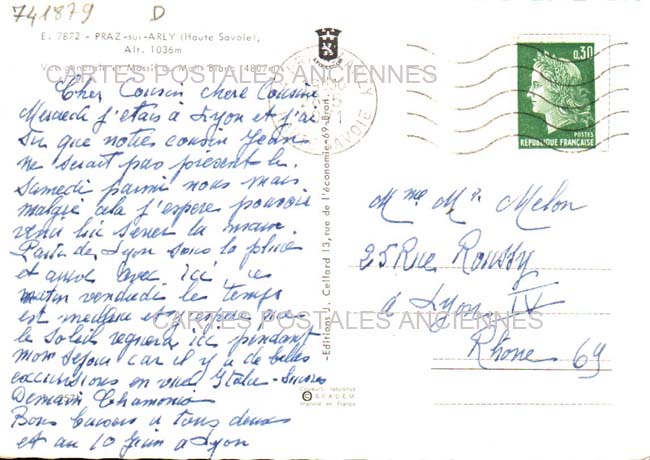 741879 D
E. 7872 - PRAZ-sur-ARLY (Haute Savoie),
Alt. 1036m
Vue générale et Massif du Mont Blanc (4807
CARTES POSTALES ANCIENNES
Cher Cousin chère Cousine
Mercredi j'étais à Lyon et j'ai
su que notre cousin Jean
ne serait pas présent le
Samedi parmi nous mais
malgré cela j'espère pouvoir
venir lui serrer la main.
Partie de Lyon sous la pluie
et arrivé avec ici ce
matin vendredi le temps
est meilleur et j'espère que
le soleil regnera ici pendant
mon séjour car il y a de belles
excursions en vue Italie - Suisse
Demain Chamonix
Bons baisers à tous deux
et au 10 juin à Lyon
-Editions J. Cellard 13, rue de l'économie-69-Bron.
Couleurs naturelles
© SPADEM
Imprimé en France
SAVOIE
0,30
POSTES
REPUBLIQUE FRANÇAISE
Mme Mr Melon
25 Rue Roussy
à Lyon IV
Rhône 69
CARTES POSTALES ANCIENNES